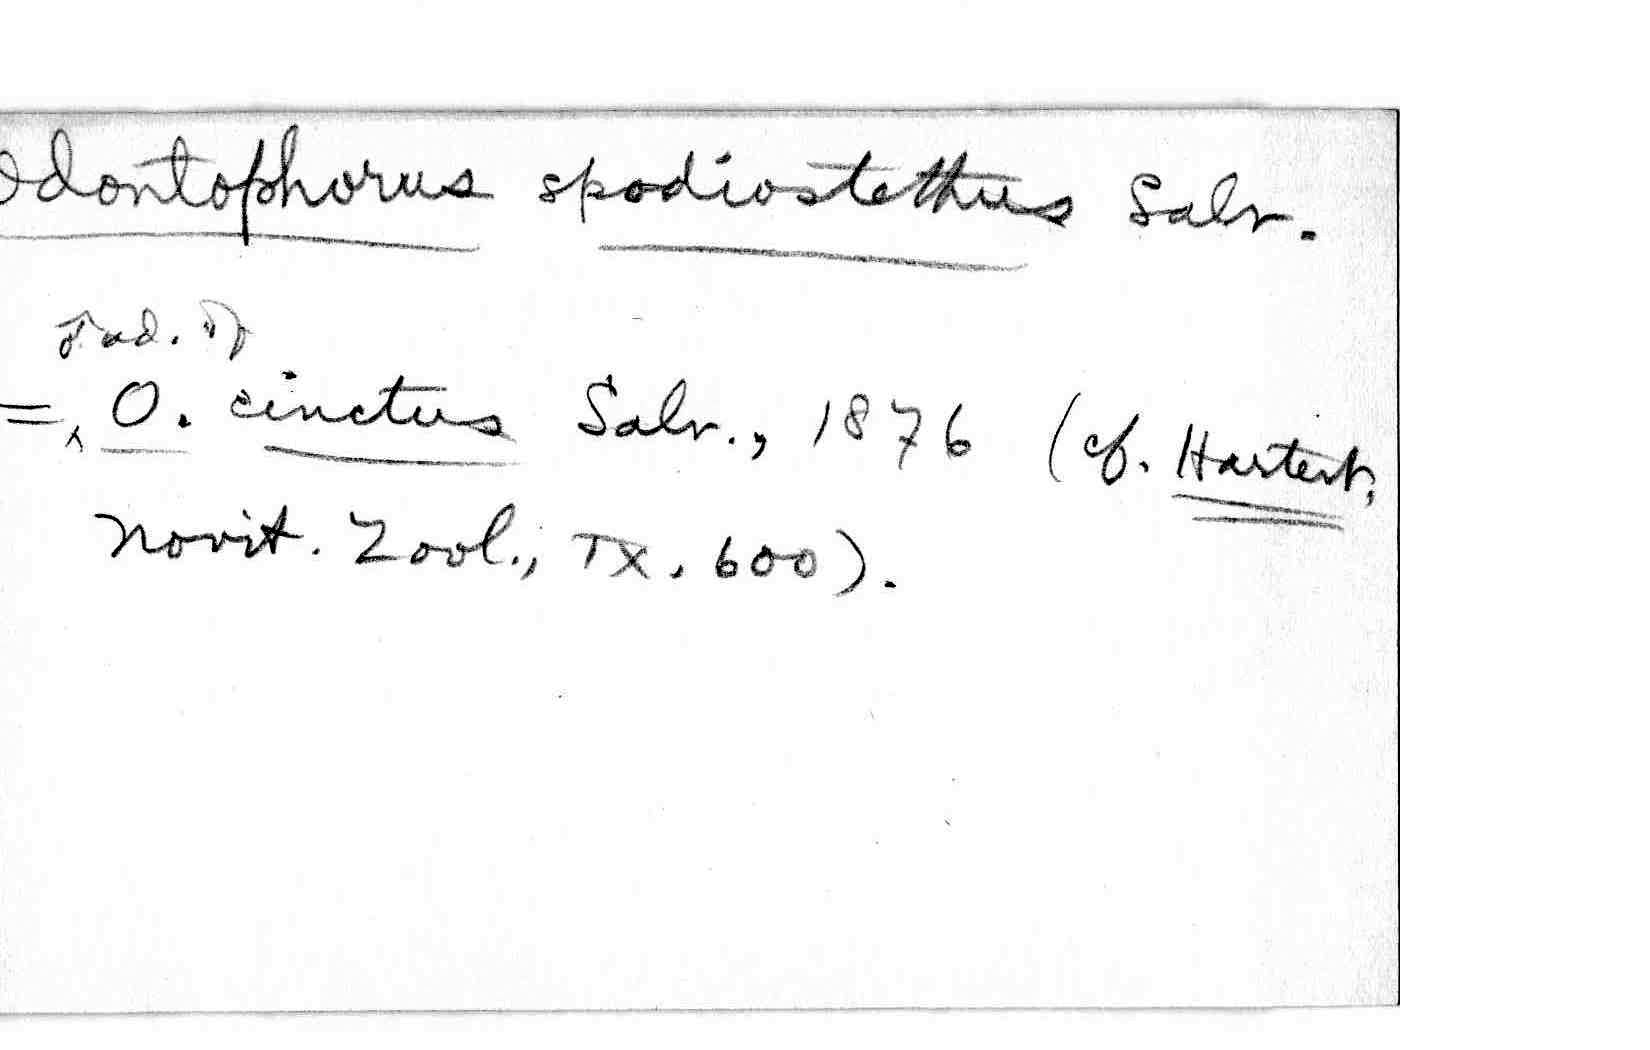 Odontophorus spodiostethus Salv.
♂ ad. of
=‸ O. cinctus Salv., 1876 (cf. Hartert,
Novit. Zool., IX, 600).